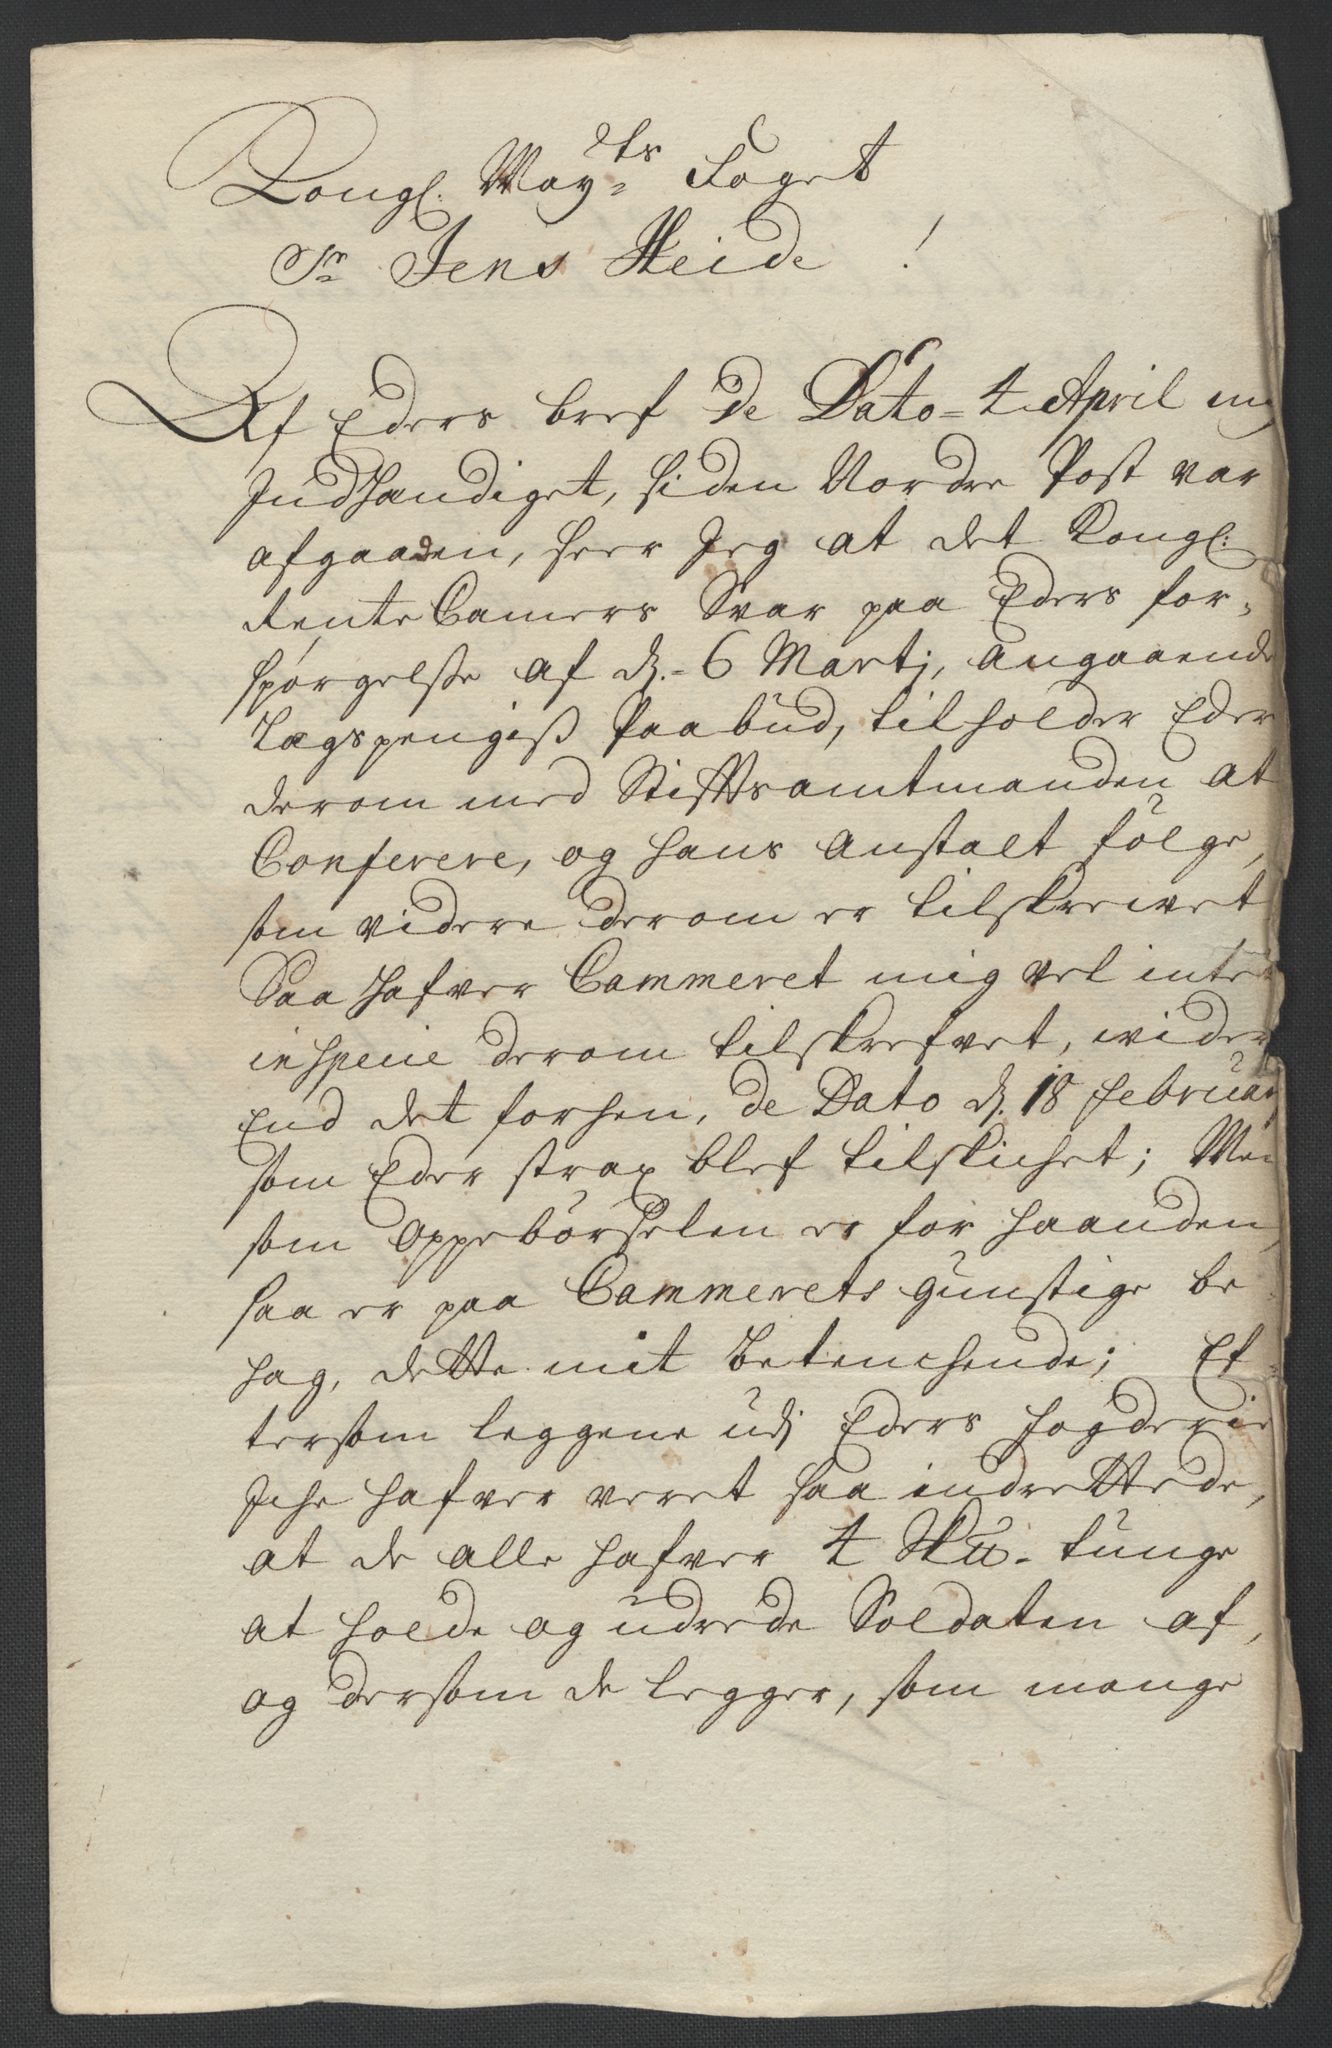 Kongl: May:ts Foget
Sr Jens Heide!
Af Eders bref de Dato 4 April mig
Indhandiget, siden Nordre Post var
afgaaden, seer Jeg at det Kongl:
RenteCamers Svar paa Eders for-
spørgelsse af d. 6 Martj, angaaende
Lægspengiß Paabud, tilholder Eder
derom med Stifftsamtmanden at
Conferere, og hans anstalt følge,
som videre derom er tilskrevet
Saa hafver Cammeret mig vel intet
in specie derom tilskrefvet, wider
End det forhen, de Dato d. 18 februar
som Eder strax blef tilskichet; Men
som oppebørselen er for haanden,
saa er paa Cammerets gunstige be-
hag, dette mit betenchende; Ef-
tersom leggene udj Eders fogderie
Iche hafver veret saa indrettede,
at de alle hafver 4 Sku. tunge
at holde og udrede Soldaten af,
og dersom de legger, som mange